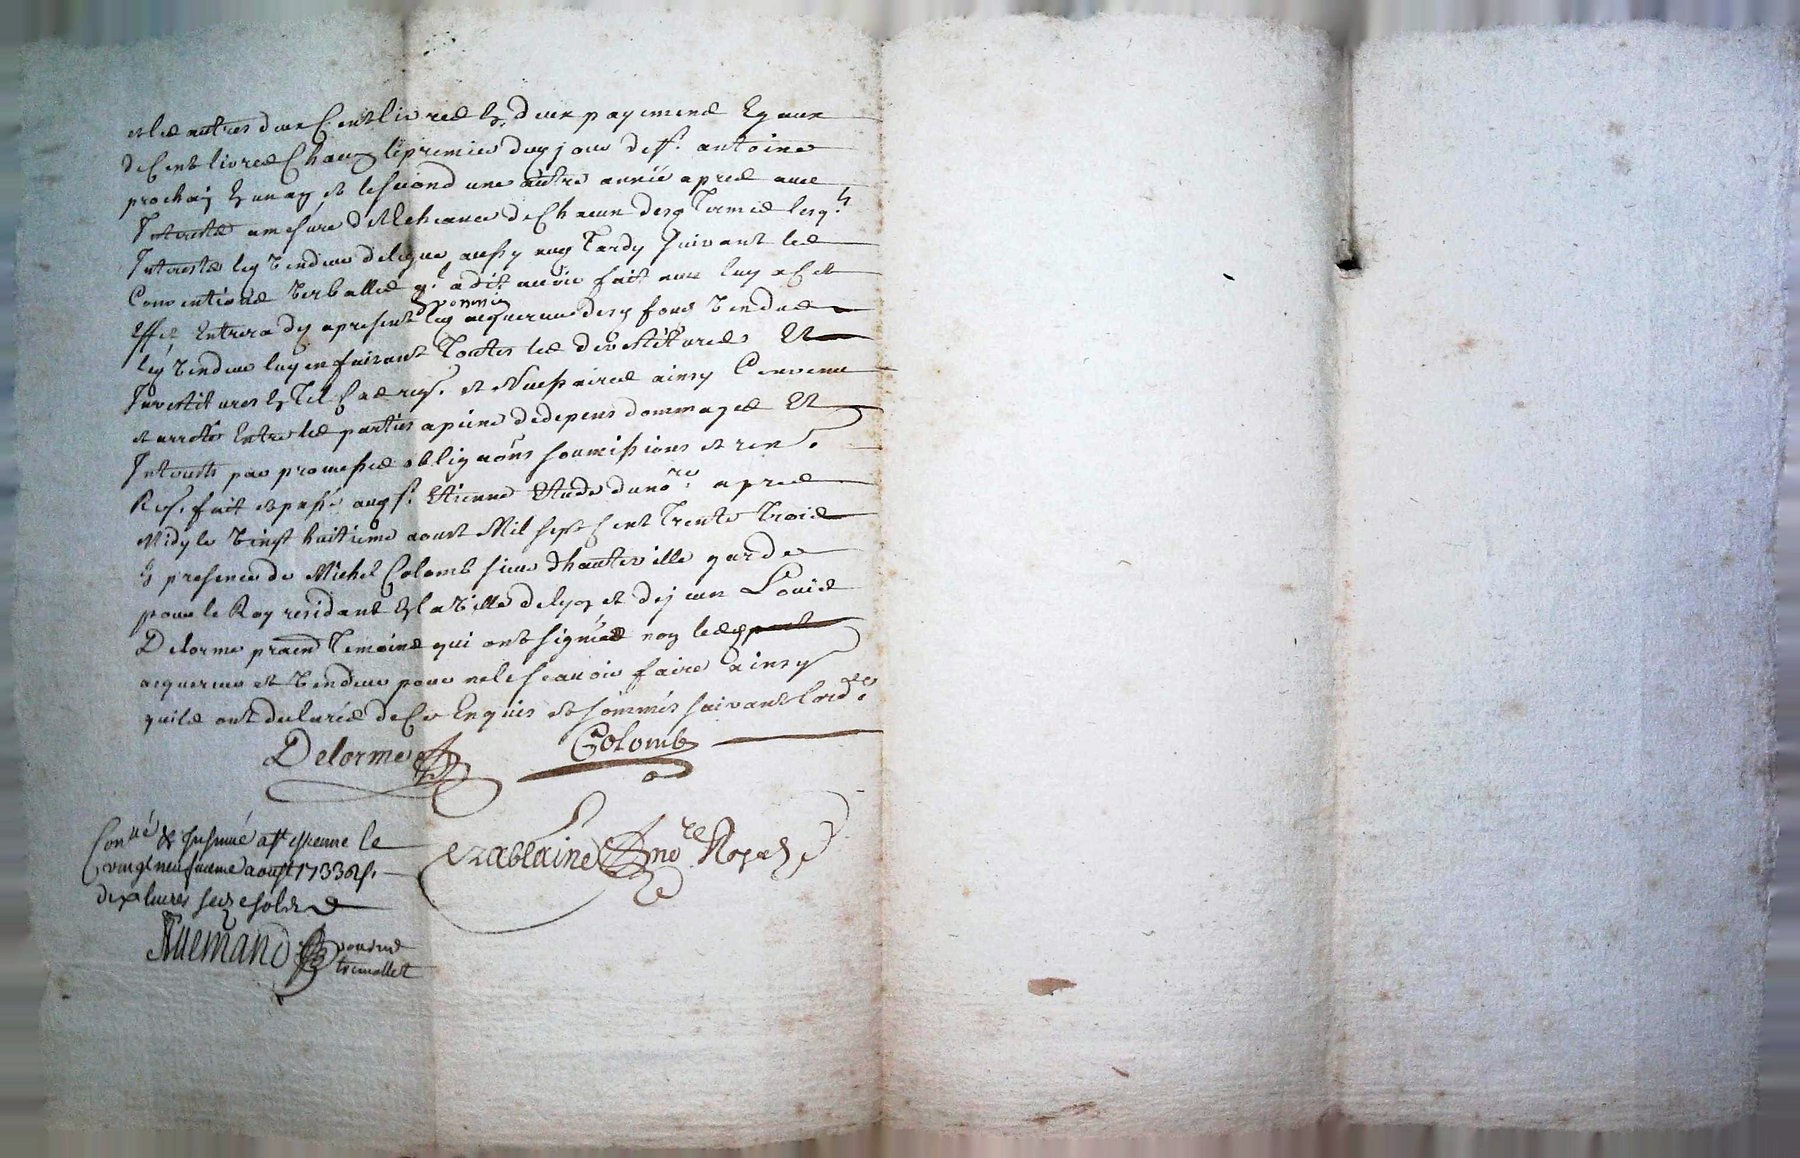 et les autres deux Cents livres En deux payements Egaux
de Cent livres Chacun le premier du jour de st. antoine
prochain En un an et le second une autre année apres avec
Interests a mesure d'Escheance de Chacun desd termes lesqls
Interests led Vendeur delegue aussy aud tardy suivant les
Conventions Verballes ql a dit avoir fait avec luy a Cet
Effet Entrera des apresent led acquereur desd fonds Vendus
led Vendeur luy en faisant toutes les devestitures Et
Investitures En tel Cas req. et necessaires ainsy Convenu
et arresté Entre les parties a peine de depens dommages Et
Interests par promesses obligaons soumissions et ren.
Req. fait et passé aud st. Etienne Etude du nore. apres
Midy le Vingt huitieme aoust Mil sept Cent trente trois
En presence de Michel Colomb sieur dhauteville garde
pour le Roy residant En la Ville de lyon et de jean Louis
Delorme praen temoins qui ont signées non lesd
acquereur et Vendeur pour ne le scavoir faire ainsy
quils ont declarés de Ce Enquis et sommés suivant lorde.
Delorme Colomb
Conllé & Insinué a st estienne le
vingt neufvieme aoust 1733 R.
dix livres seize sols
nore Royal